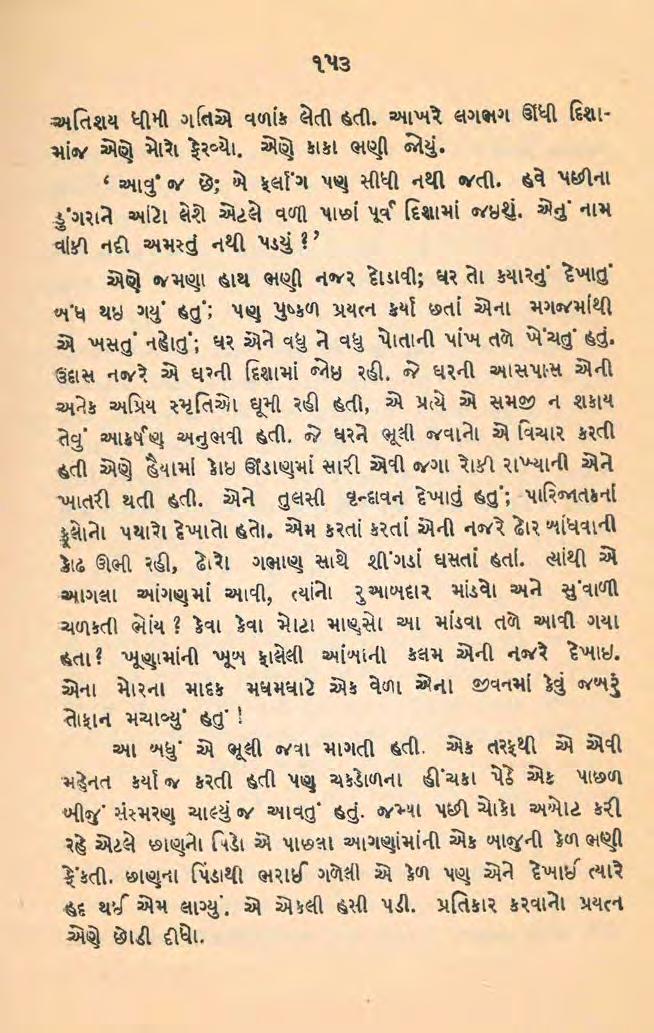 ૧૫૩
અતિશય ધીમી ગતિએ વળાંક લેતી હતી. આખરે લગભગ ઊંધી દિશા-
માંજ એણે મોરો ફેરવ્યો. એણે કાકા ભણી જોયું.
‘ આવું જ છે; બે ફર્લાંગ પણ સીધી નથી જતી. હવે પછીના
ડુંગરાને આંટો લેશે એટલે વળી પાછાં પૂર્વ દિશામાં જઇશું. એનું નામ
વાંકી નદી અમસ્તું નથી પડયું ?’
એણે જમણા હાથ ભણી નજર દોડાવી; ઘર તો કયારનું દેખાતું
બંધ થઇ ગયું હતું; પણ પુષ્કળ પ્રયત્ન કર્યા છતાં એના મગજમાંથી
એ ખસતું નહોતું; ઘર એને વધુ ને વધુ પોતાની પાંખ તળે ખેંચતું હતું.
ઉદાસ નજરે એ ઘરની દિશામાં જોઇ રહી. જે ઘરની આસપાસ એની
અનેક અપ્રિય સ્મૃતિઓ ઘૂમી રહી હતી, એ પ્રત્યે એ સમજી ન શકાય
તેવું આકર્ષણ અનુભવી હતી. જે ઘરને ભૂલી જવાનો એ વિચાર કરતી
હતી એણે હૈયામાં કોઇ ઊંડાણમાં સારી એવી જગા રોકી રાખ્યાની એને
ખાતરી થતી હતી. એને તુલસી વૃન્દાવન દેખાતું હતું; પારિજાતકનાં
ફૂલોનો પથારો દેખાતો હતો. એમ કરતાં કરતાં એની નજરે ઢોર બાંધવાની
કોઢ ઊભી રહી, ઢોરો ગભાણ સાથે શીંગડાં ઘસતાં હતાં. ત્યાંથી એ
આગલા આંગણમાં આવી, ત્યાંનો રુઆબદાર માંડવો અને સુંવાળી
ચળકતી ભોંય ? કેવા કેવા મોટા માણસો આ માંડવા તળે આવી ગયા
હતા? ખૂણામાંની ખૂબ ફાલેલી આંબાની કલમ એની નજરે દેખાઇ.
એના મોરના માદક મઘમઘાટે એક વેળા એના જીવનમાં કેવું જબરું
તોફાન મચાવ્યું હતું !
આ બધું એ ભૂલી જવા માગતી હતી. એક તરફથી એ એવી
મહેનત કર્યા જ કરતી હતી પણ ચકડોળના હીંચકા પેઠે એક પાછળ
બીજું સંસ્મરણ ચાલ્યું જ આવતું હતું. જમ્યા પછી ચોકો અબોટ કરી
રહે એટલે છાણનો પિંડો એ પાછલા આગણાંમાંની એક બાજુની કેળ ભણી
ફેંકતી. છાણના પિંડાથી ભરાઈ ગળેલી એ કેળ પણ એને દેખાઈ ત્યારે
હદ થઈ એમ લાગ્યું. એ એકલી હસી પડી. પ્રતિકાર કરવાનો પ્રયત્ન
એણે છોડી દીધો.